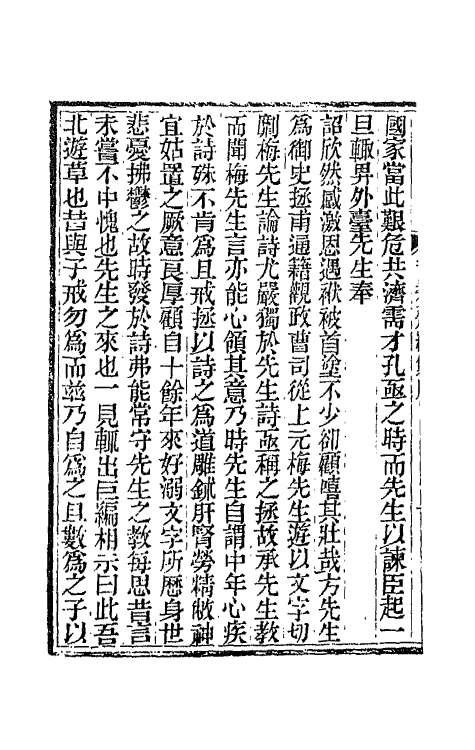 國家當此艱危共濟需才孔亟之時而先生以諫臣起一
旦輒畀外臺先生奉
詔欣然感激恩遇祓被首塗不少卻顧嘻其壯哉方先生
爲御史拯甫通籍觀政曹司從上元梅先生遊以文字切
劘梅先生論詩尤嚴獨於先生詩亟稱之拯故承先生教
而聞梅先生言亦能心領其意乃時先生自謂中年心疾
於詩殊不肯爲且戒拯以詩之爲道雕鉥肝腎勞精敝神
宜姑置之厥意良厚顧自十餘年來好溺文字所歷身世
悲憂拂鬱之故時發於詩弗能常守先生之教每思昔言
未嘗不中愧也先生之來也一見輒出巨編相示曰此吾
北遊草也昔與子戒勿爲而茲乃自爲之且數爲之子以